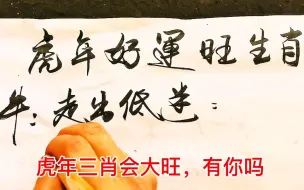 虎年好運旺生肖
牛：走出低迷：
虎年三肖会大旺，有你吗